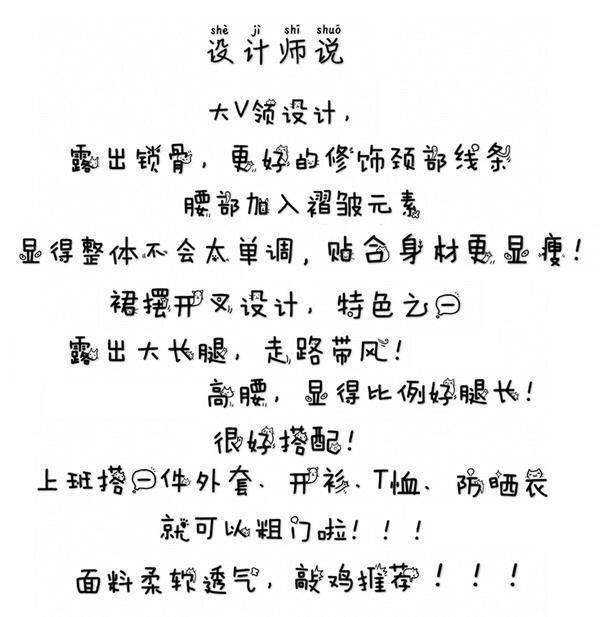 shè jì shī shuō
设计师说
大V领设计，
露出锁骨，更好的修饰颈部线条
腰部加入褶皱元素
显得整体不会太单调，贴合身材更显瘦！
裙摆开叉设计，特色之一
露出大长腿，走路带风！
高腰，显得比例好腿长！
很好搭配！
上班搭一件外套、开衫、T恤、防晒衣
就可以粗门啦！！！
面料柔软透气，敲鸡推荐！！！